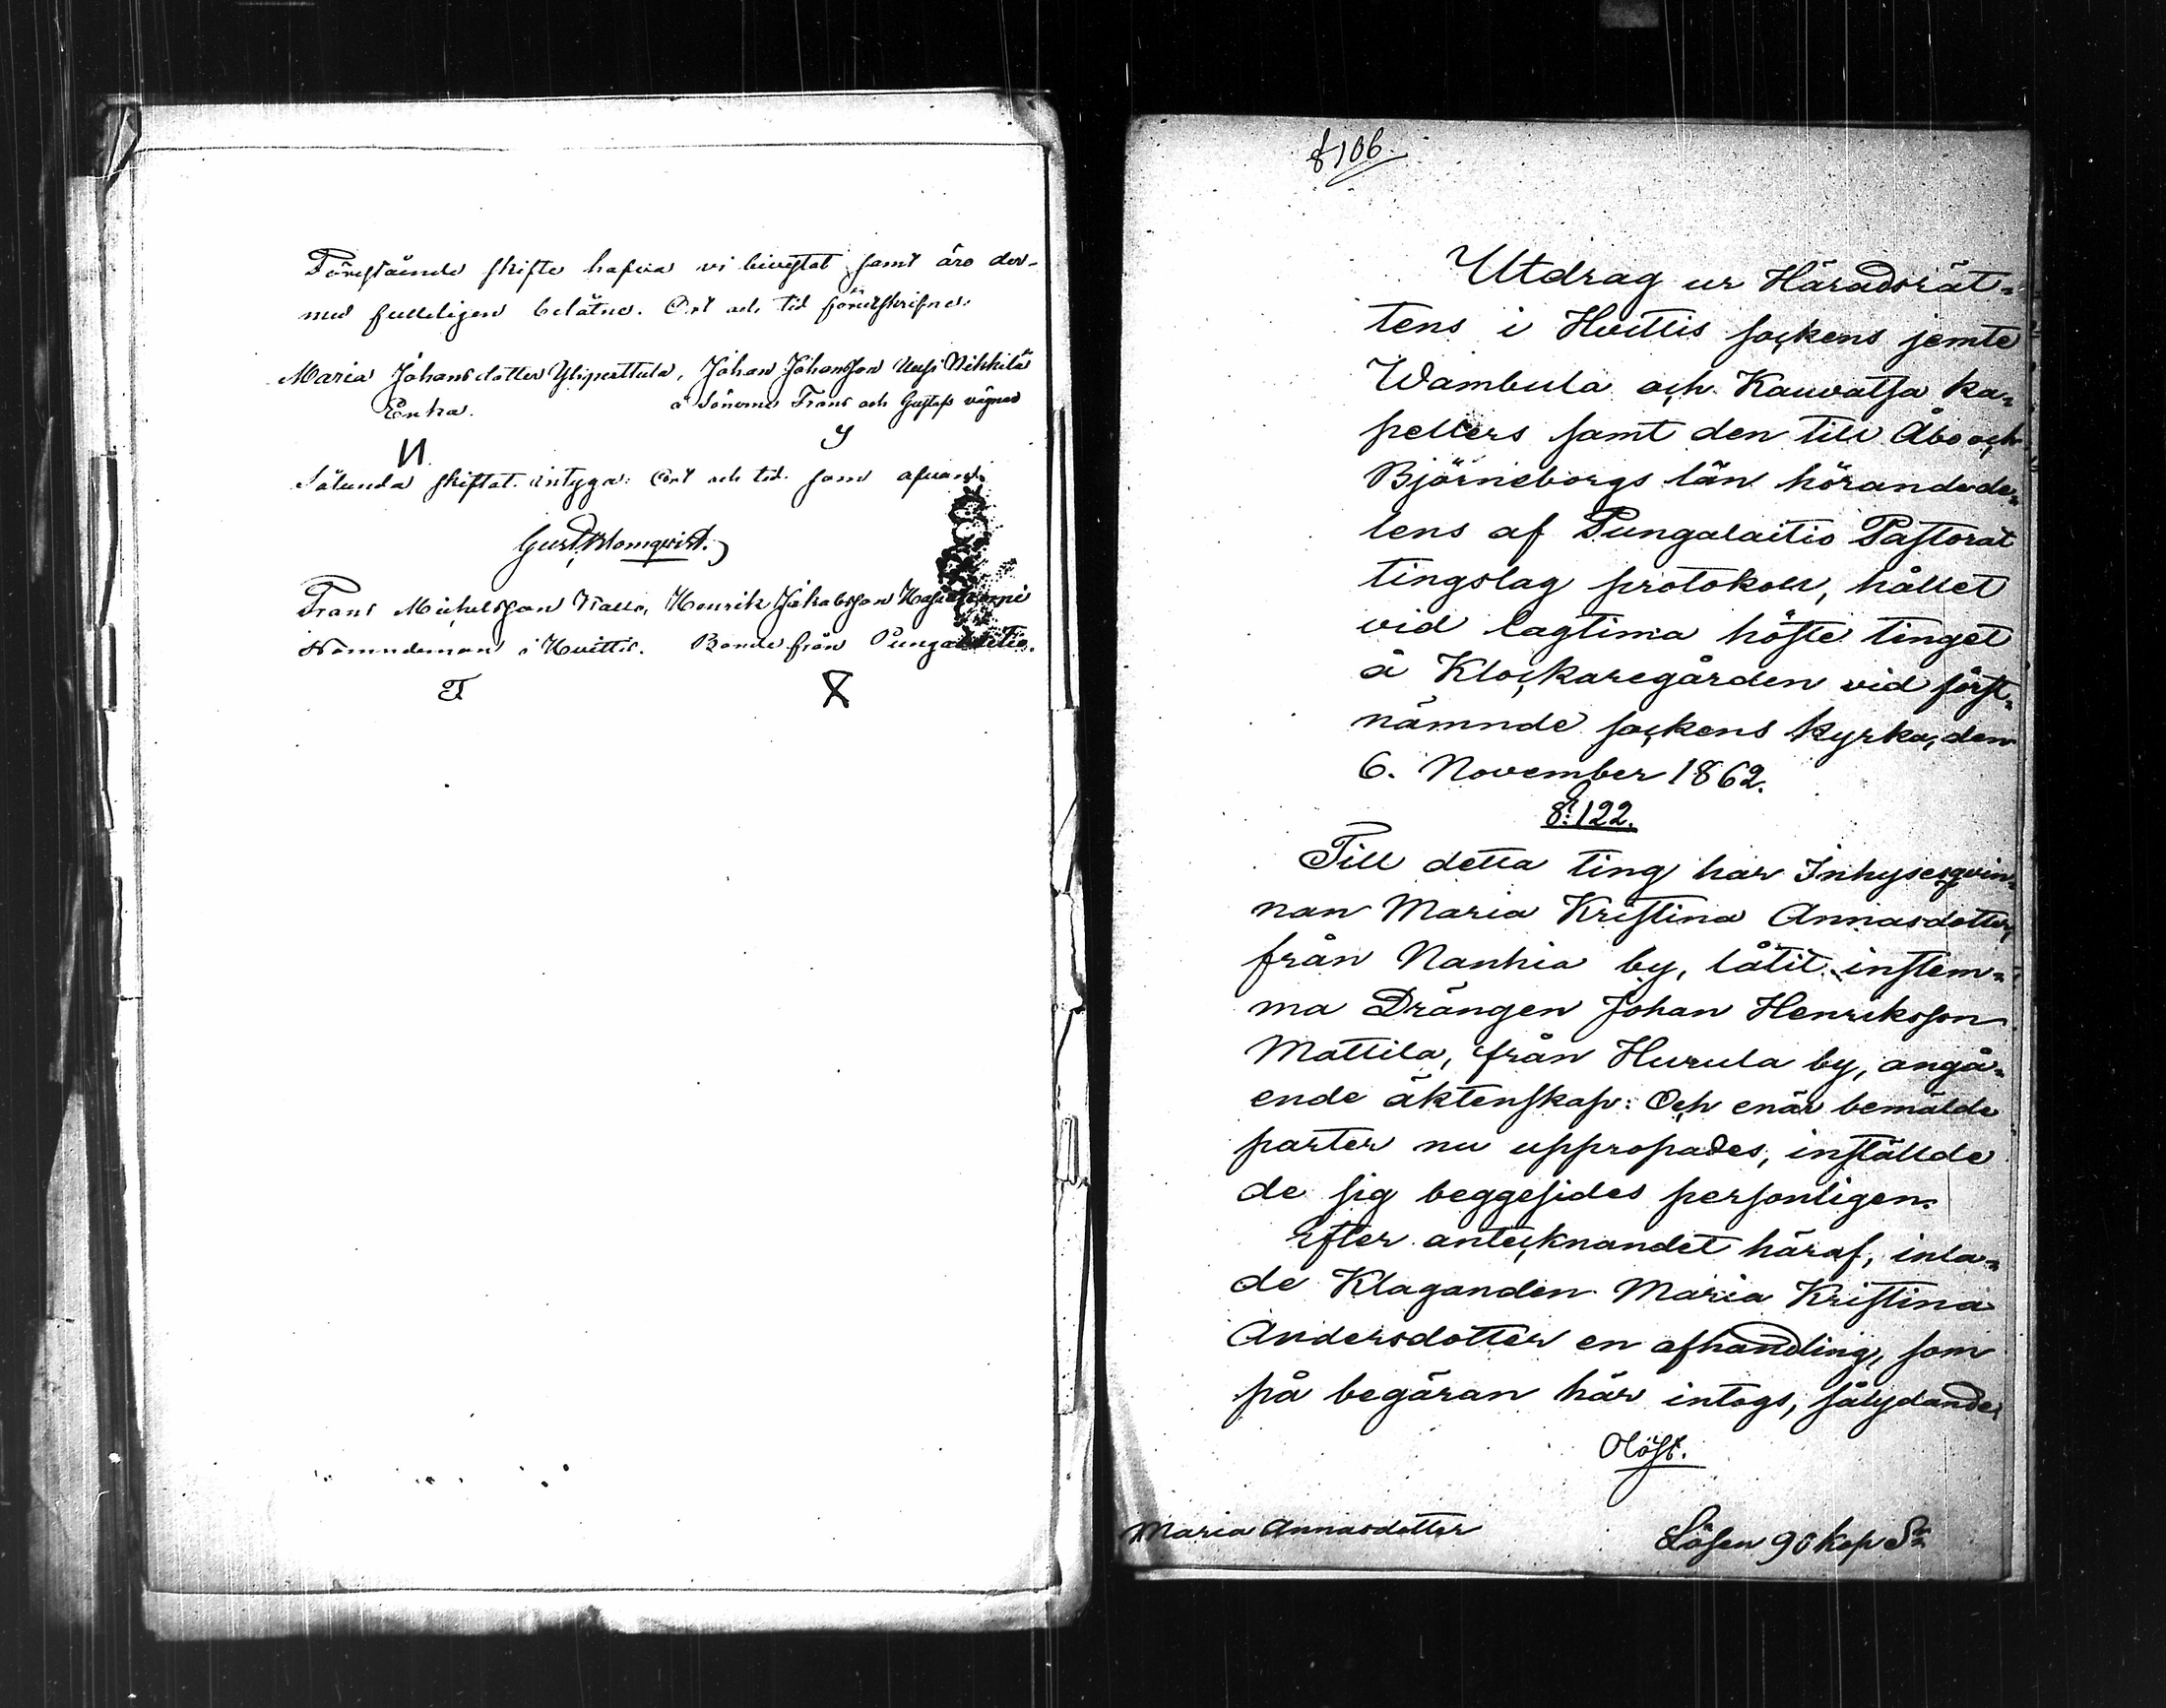 Föreståinde skifte hafva vi bivistat samt äro der-
med fulleligen belåtne. Ort och tid förutskrifne.
Maria Johansdotter Yliperttula, Johan Johansson Uusi Nikkilä
Enka. å Sönerne Frans och Gustafs vägnar
Sålunda skiftat intyga: Ort och tid som ofvan.
Gust. Blomqvist.
Frans Michelsson Henrik Jakobsson
Nämndeman i Huittis. Bonde från Pungalaitio.
§ 106.
Utdrag ur Häradsrät-
tens i Huittis sockens jemte
Wambula och Kauvatsa ka-
pellers samt den till Åbo och
Björneborgs län hörande de-
lens af Pungalaitio Pastorat
tingslag protokoll, hållet
vid lagtima höste tinget
å Klockaregården vid först-
nämnde sockens kyrka, den
6. November 1862.
§: 122.
Till detta ting har Inhysesqvin-
nan Maria Kristina Annasdotter,
från Nanhia by, låtit instem-
ma Drängen Johan Henriksson
Mattila, från Hurula by, angå-
ende äktenskap: Och enär bemälde
parter nu uppropades, inställde
de sig beggesides personligen.
Efter antecknandet häraf, inla-
de Klaganden Maria Kristina
Andersdotter en afhandling, som
på begäran här intogs, sålydande:
Olöst.
Maria Annasdotter Lösen 90 kop Sr